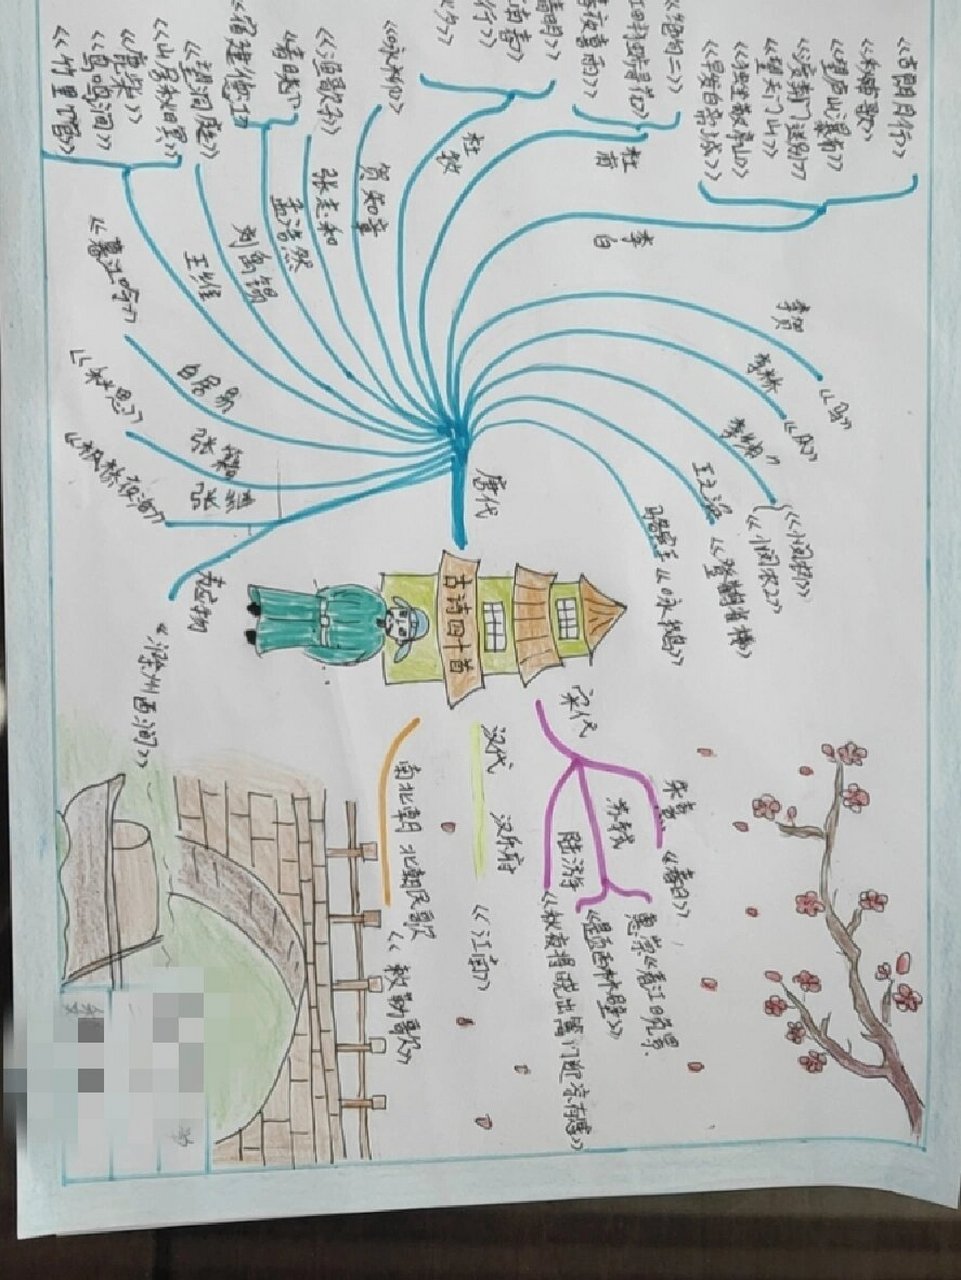 古诗四十首
唐代
李白
《古朗月行》
《秋浦歌》
《望庐山瀑布》
《望天门山》
《独坐敬亭山》
《早发白帝城》
杜甫
《绝句二》
杜牧
贺知章
《咏柳》
张志和
《渔歌子》
孟浩然
《春晓》
《宿建德江》
刘禹锡
《望洞庭》
王维
《山居秋暝》
《鹿柴》
《鸟鸣涧》
《竹里馆》
白居易
《暮江吟》
张籍
《秋思》
张继
《枫桥夜泊》
韦应物
《滁州西涧》
李贺
《马》
李峤
《风》
李绅
《悯农》
《悯农2》
王之涣
《登鹳雀楼》
骆宾王
《咏鹅》
宋代
朱熹
《春日》
苏轼
惠崇《春江晚景
《题西林壁》
陆游
《秋夜将晓出篱门迎凉有感》
汉代
汉乐府
《江南》
南北朝
北朝民歌
《敕勒歌》